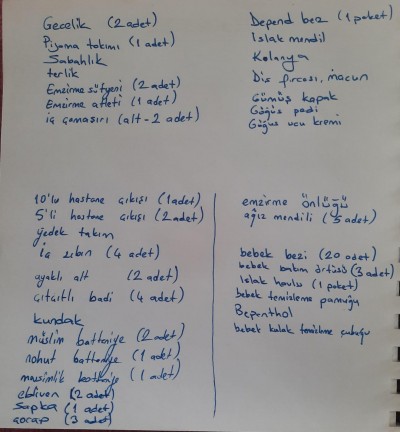 Gecelik (2 adet)
Pijama takımı (1 adet)
Sabahlık
terlik
Emzirme sütyeni (2 adet)
Emzirme atleti (1 adet)
iç çamaşırı (alt - 2 adet)
Depend bez (1 paket)
Islak mendil
Kolonya
Diş fırçası, macun
Gümüş kapak
Göğüs pedi
Göğüs ucu kremi
10'lu hastane çıkışı (1 adet)
5'li hastane çıkışı (2 adet)
yedek takım
iç zıbın (4 adet)
ayaklı alt (2 adet)
çıtçıtlı badi (4 adet)
kundak
müslin battaniye (2 adet)
nohut battaniye (1 adet)
mevsimlik battaniye (1 adet)
eldiven (2 adet)
şapka (1 adet)
çorap (3 adet)
emzirme önlüğü
ağız mendili (5 adet)
bebek bezi (20 adet)
bebek bakım örtüsü (3 adet)
Islak havlu (1 paket)
bebek temizleme pamuğu
Bepanthol
bebek kulak temizleme çubuğu